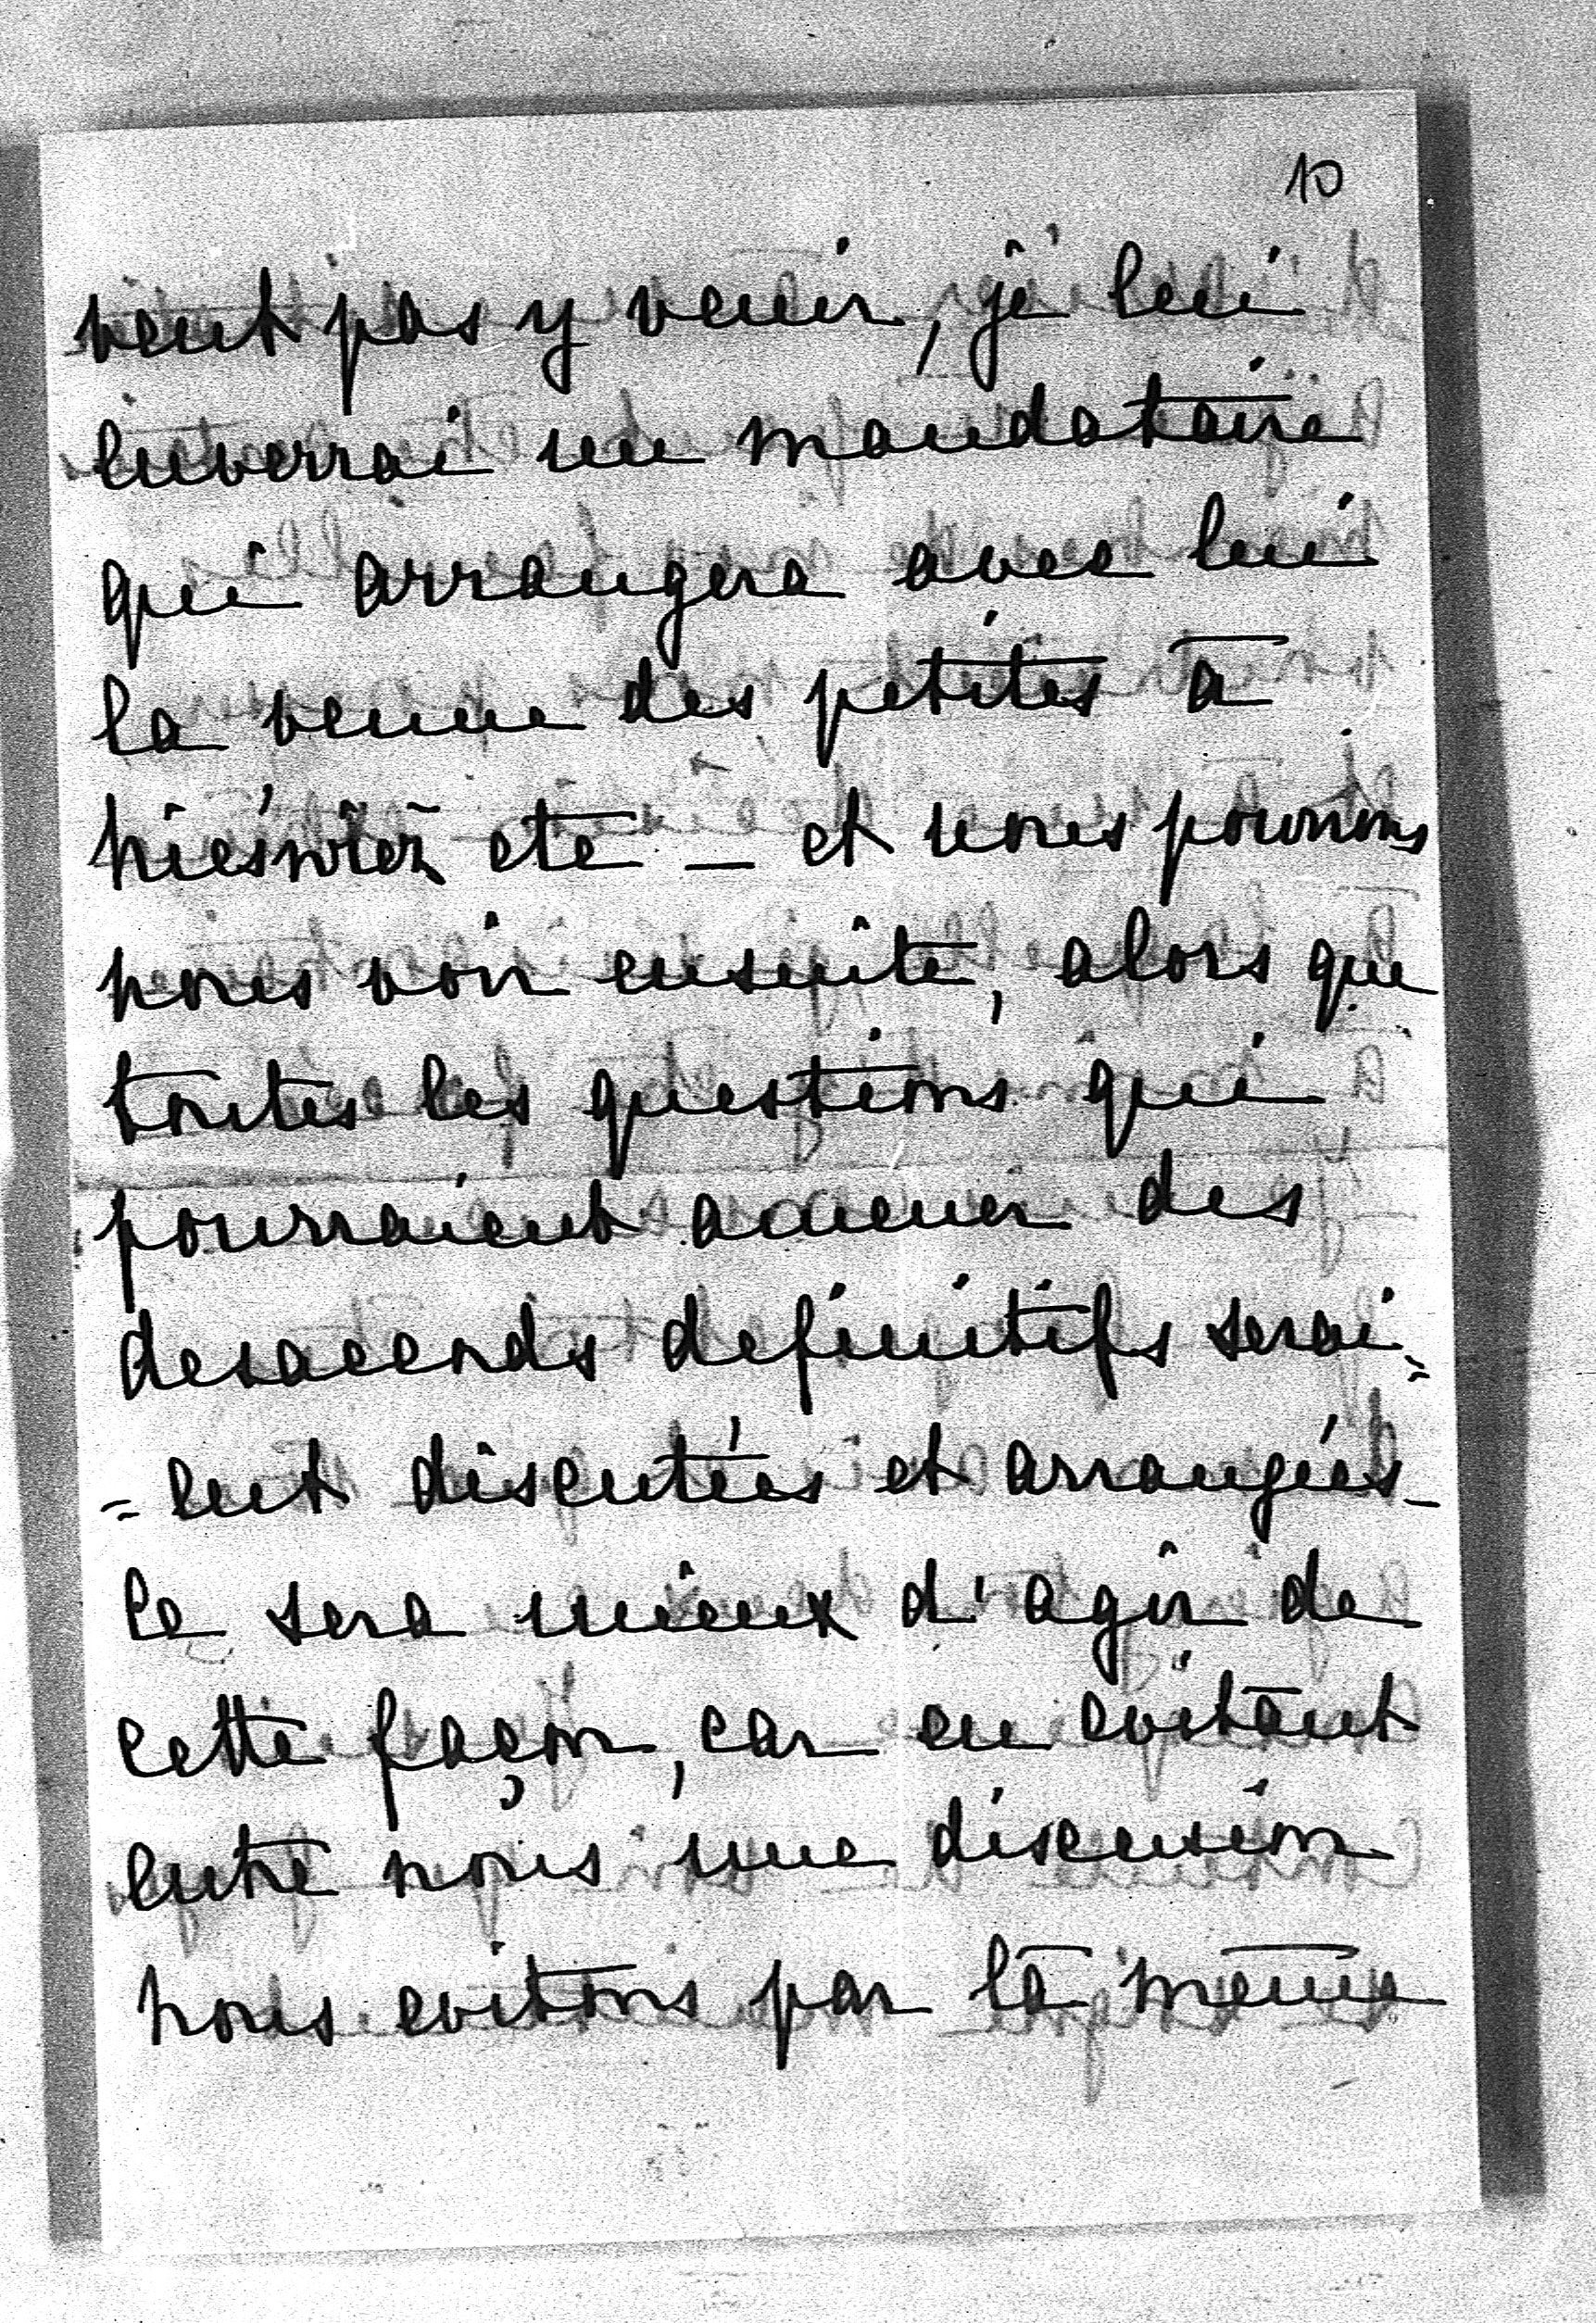 10
veut pas y venir, je lui
enverrai un mandataire
qui arrangera avec lui
la venue des petites à
etc — et nous pourrons
nous voir ensuite, alors que
toutes les questions qui
pourraient amener des
desaccords definitifs serai=
=ent discutées et arrangées_
Ce sera mieux d'agir de
cette façon, car en evitant
entre nous une discusion
nous evitons par là même